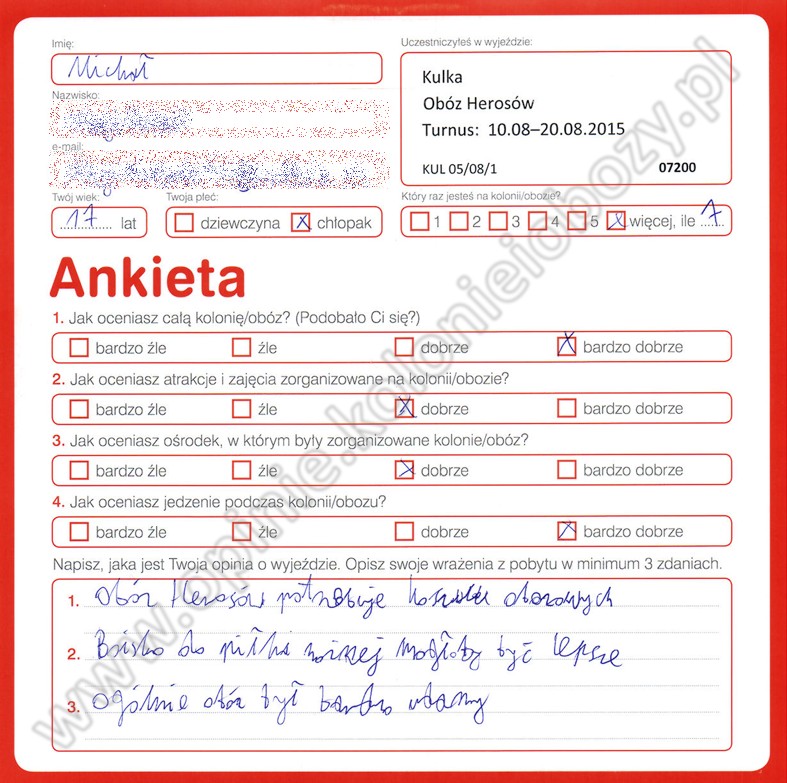 Imię:
Michał
Uczestniczyłeś w wyjeździe:
Kulka
Obóz Herosów
Turnus: 10.08–20.08.2015
KUL 05/08/1 07200
Nazwisko:
e-mail:
Twój wiek:
17 lat
Twoja płeć:
dziewczyna X chłopak
Który raz jesteś na kolonii/obozie?
1 2 3 4 5 X więcej, ile 7
Ankieta
1. Jak oceniasz całą kolonię/obóz? (Podobało Ci się?)
bardzo źle źle dobrze X bardzo dobrze
2. Jak oceniasz atrakcje i zajęcia zorganizowane na kolonii/obozie?
bardzo źle źle X dobrze bardzo dobrze
3. Jak oceniasz ośrodek, w którym były zorganizowane kolonie/obóz?
bardzo źle źle X dobrze bardzo dobrze
4. Jak oceniasz jedzenie podczas kolonii/obozu?
bardzo źle źle dobrze X bardzo dobrze
Napisz, jaka jest Twoja opinia o wyjeździe. Opisz swoje wrażenia z pobytu w minimum 3 zdaniach.
1. Obóz Herosów potrzebuje koszulek obozowych
2. Boisko do piłki nożnej mogłoby być lepsze
3. Ogólnie obóz był bardzo udany
www.opinie.kolonieiobozy.pl